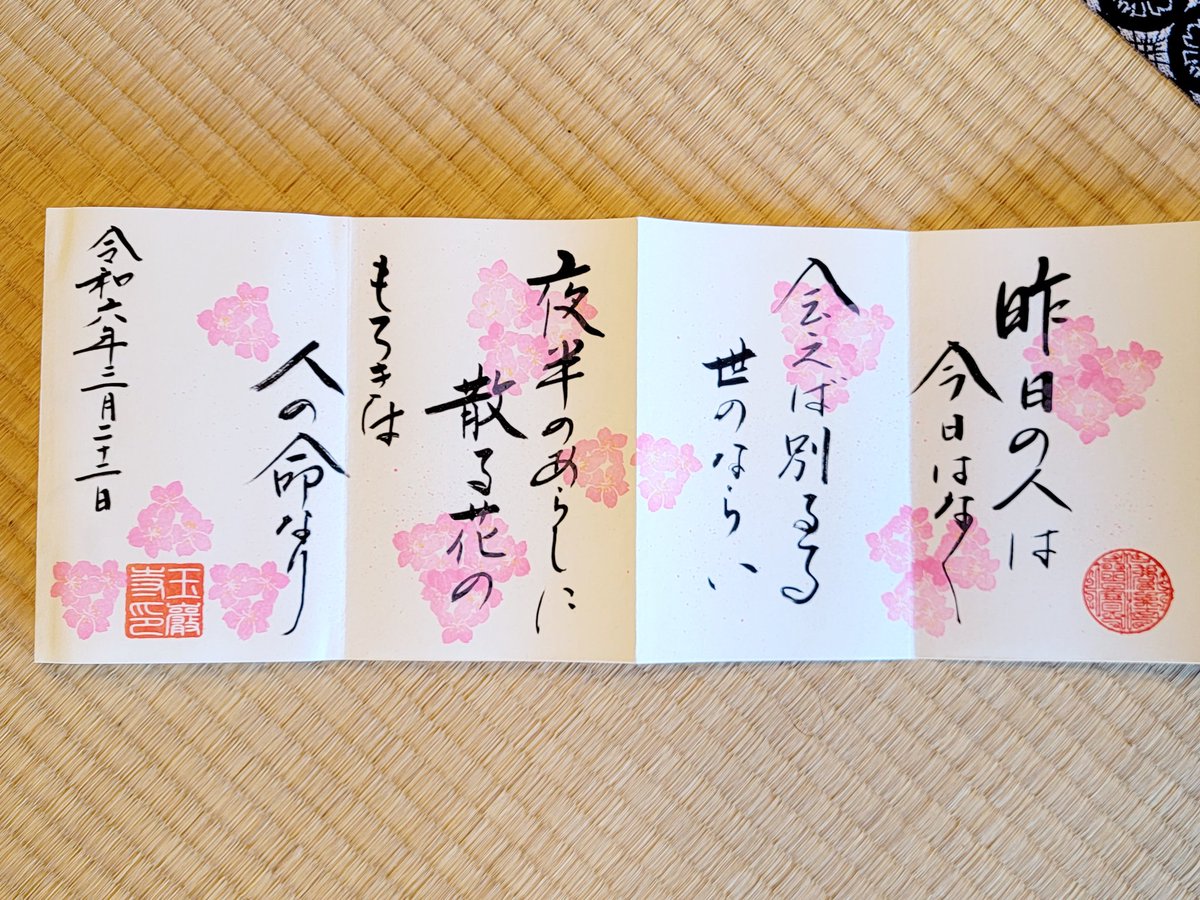 昨日の人は
今日はなく
会えば別るる
世のならい
夜半のあらしに
散る花の
もろきは
人の命なり
令和六年三月二十二日
玉巖寺印